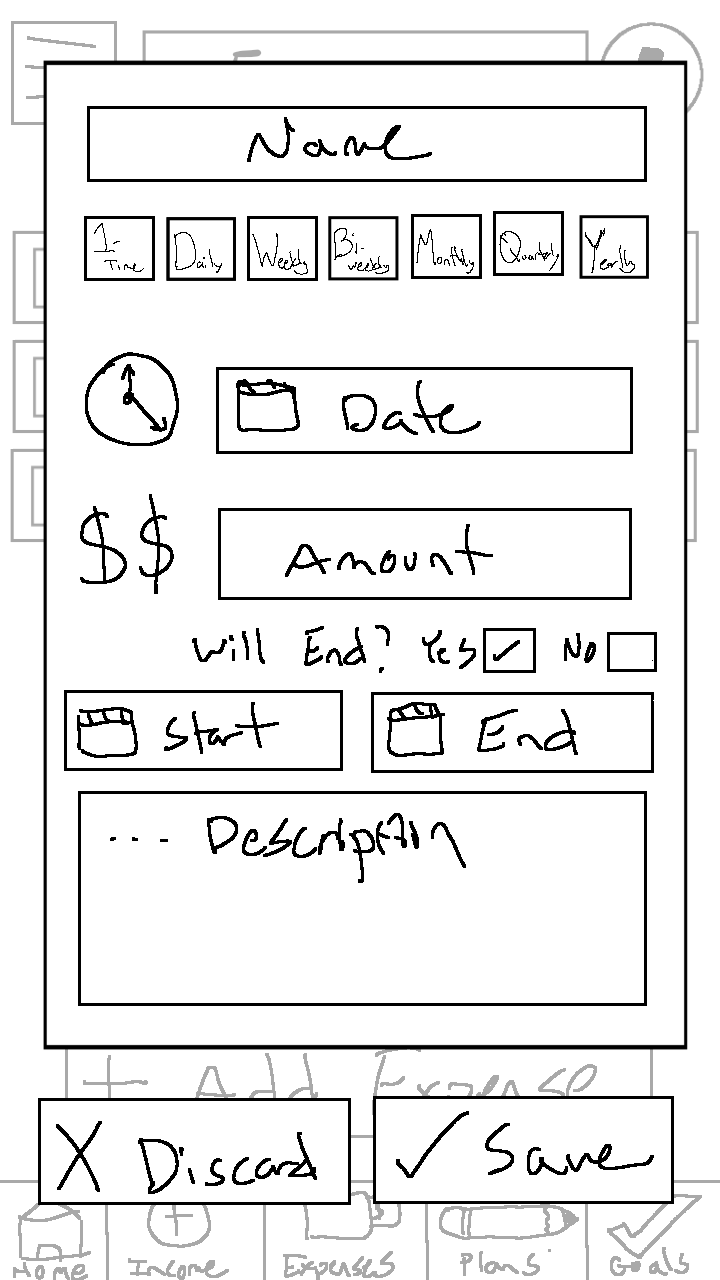 Name
1-Time Daily Weekly Bi-weekly Monthly Quarterly Yearly
Date
$$ Amount
Will End? Yes No
Start End
... Description
+ Add Expense
X Discard ✓ Save
Home Income Expenses Plans Goals